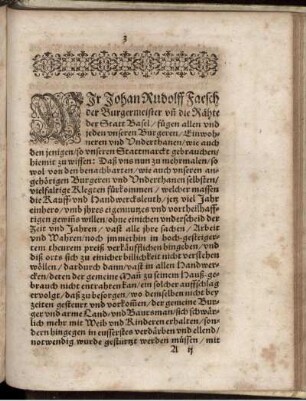 3
WIr Johan Rudolff Faesch
der Burgermeister vñ die Rähte
der Statt Basel / fügen allen vnd
jeden vnseren Burgeren / Einwoh-
neren vnd Vnderthanen / wie auch
den jenigen / so vnseren Stattmarckt gebrauchen /
hiemit zu wissen: Daß vns nun zu mehrmalen / so
wol von den benachbarten / wie auch vnseren an-
gehörigen Burgeren vnd Vnderthanen selbsten /
vielfaltige Klegten fürkommen / welcher massen
die Kauff- vnd Handwercksleuth / jetz viel Jahr
einhero / vmb jhres eigennutzes vnd vortheilhaff-
tigen gewiñs willen / ohne einichen vnderscheid der
Zeit vnd Jahren / vast alle jhre sachen / Arbeit
vnd Wahren / noch jmmerhin in hoch-gesteiger-
tem theurem preiß verkäufflichen hingeben / vnd
diß orts sich zu einicher billichkeit nicht verstehen
wöllen / dardurch dann / vast in allen Handwer-
cken / deren der gemeine Man zu seinem Hauß-ge-
brauch nicht entrahten kan / ein solcher auffschlag
ervolgt / daß zu besorgen / wo demselben nicht bey
zeiten gesteurt vnd vorkom̃en / der gemeine Bur-
ger vnd arme Land / vnd Bautsman / sich schwär-
lich mehr mit Weib vnd Kinderen erhalten / son-
dern hingegen in eusserstes verdärben vnd ellend /
notwendig wurde gestürtzt werden müssen / mit
A ij